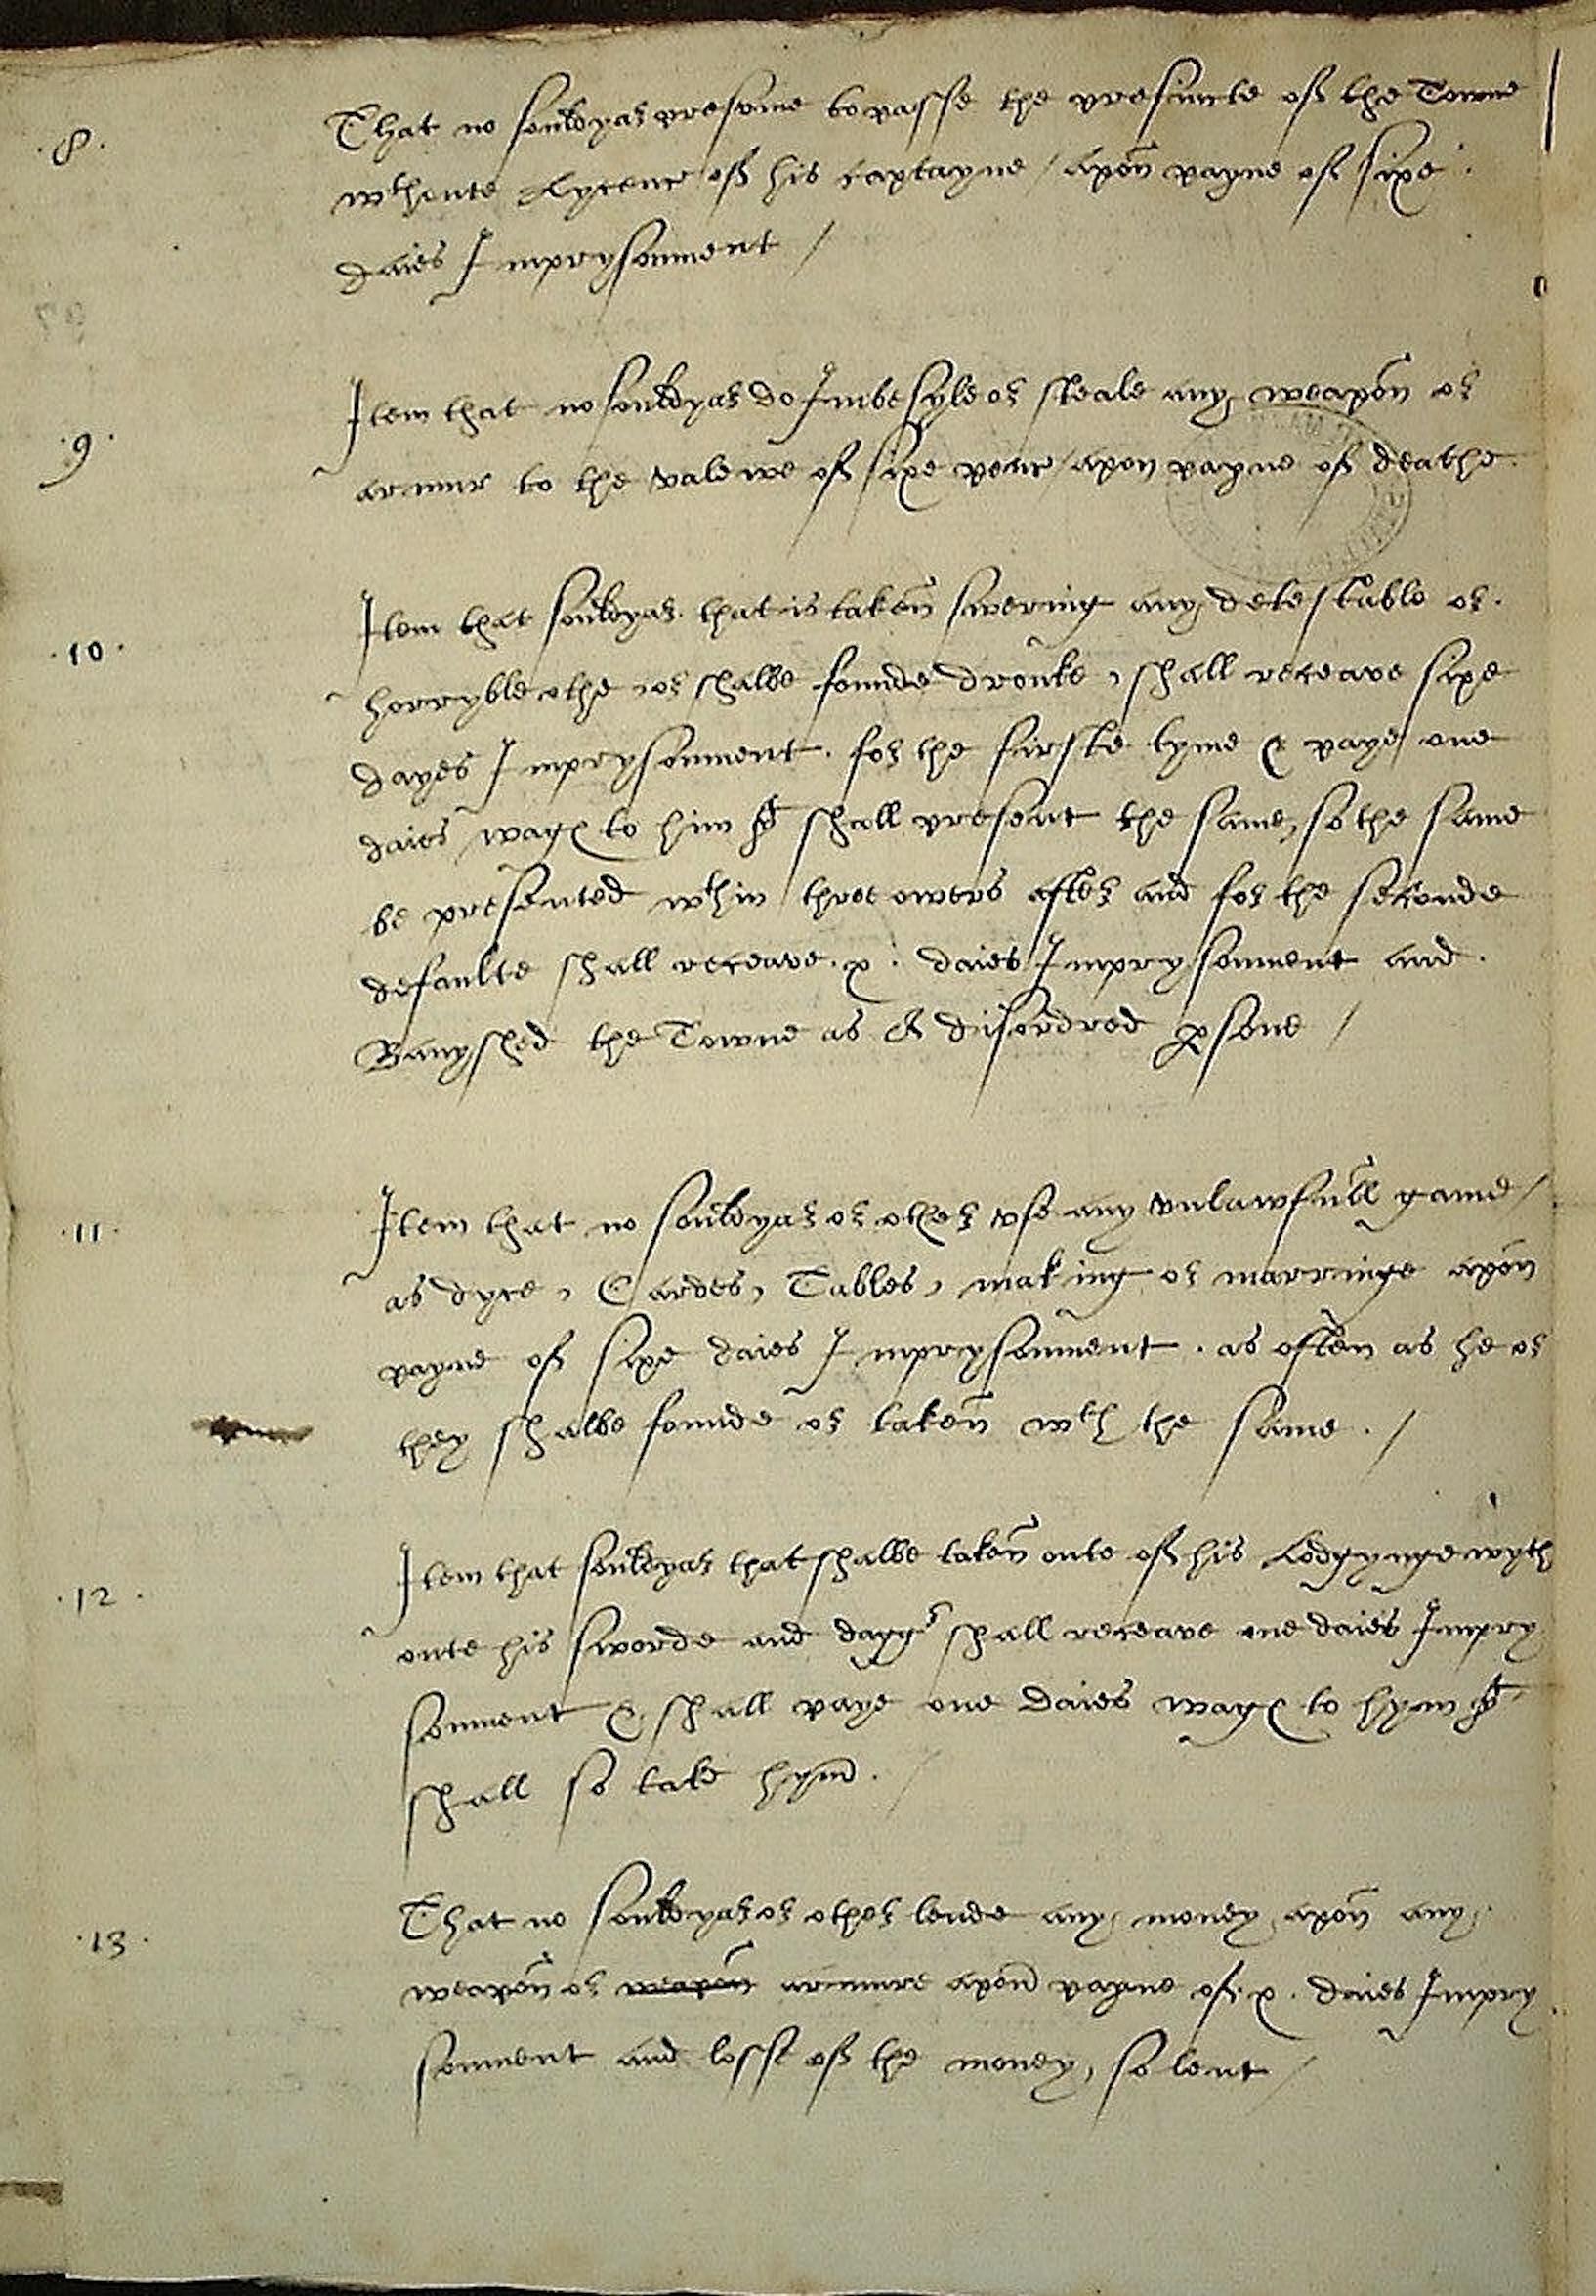 .8.
That no souldyar presome to passe the presincte off the Towne
wthoute Lycence off his captayne / apon payne off sixe
daies Imprysonment /
.9.
Item that no souldyar do Imbesyle or steale any weapon or
armur to the valewe off sixe pence / apon payne off deathe.
.10.
Item that souldyar that is taken swering any detestable or
horryble othe, or shalbe founde dronke, shall receave sixe
dayes Imprysonment. for the firste tyme & paye one
daies wages to him yt shall present the same, so the same
be presented wthin three owers after and for the seconde
defaulte shall receave .x. daies Imprysonment and
Banyshed the Towne as A disordred psone /
.11.
Item that no souldyar or other vse any vnlawfull game /
as dyce, Cardes, Tables, making or marringe apon
payne off sixe daies Imprysonment. as often as he or
they shalbe founde or taken wth the same. /
.12.
Item that souldyar that shalbe taken oute off his Lodgynge wyth
oute his sworde and dagger shall receave one daies Impry
sonment & shall paye one daies wages to hym yt
shall so take hym. /
.13.
That no souldyar or other lende any money apon any
weapon or weapon armure apon payne off .x. daies Impry
sonment and losse off the money, so lent /